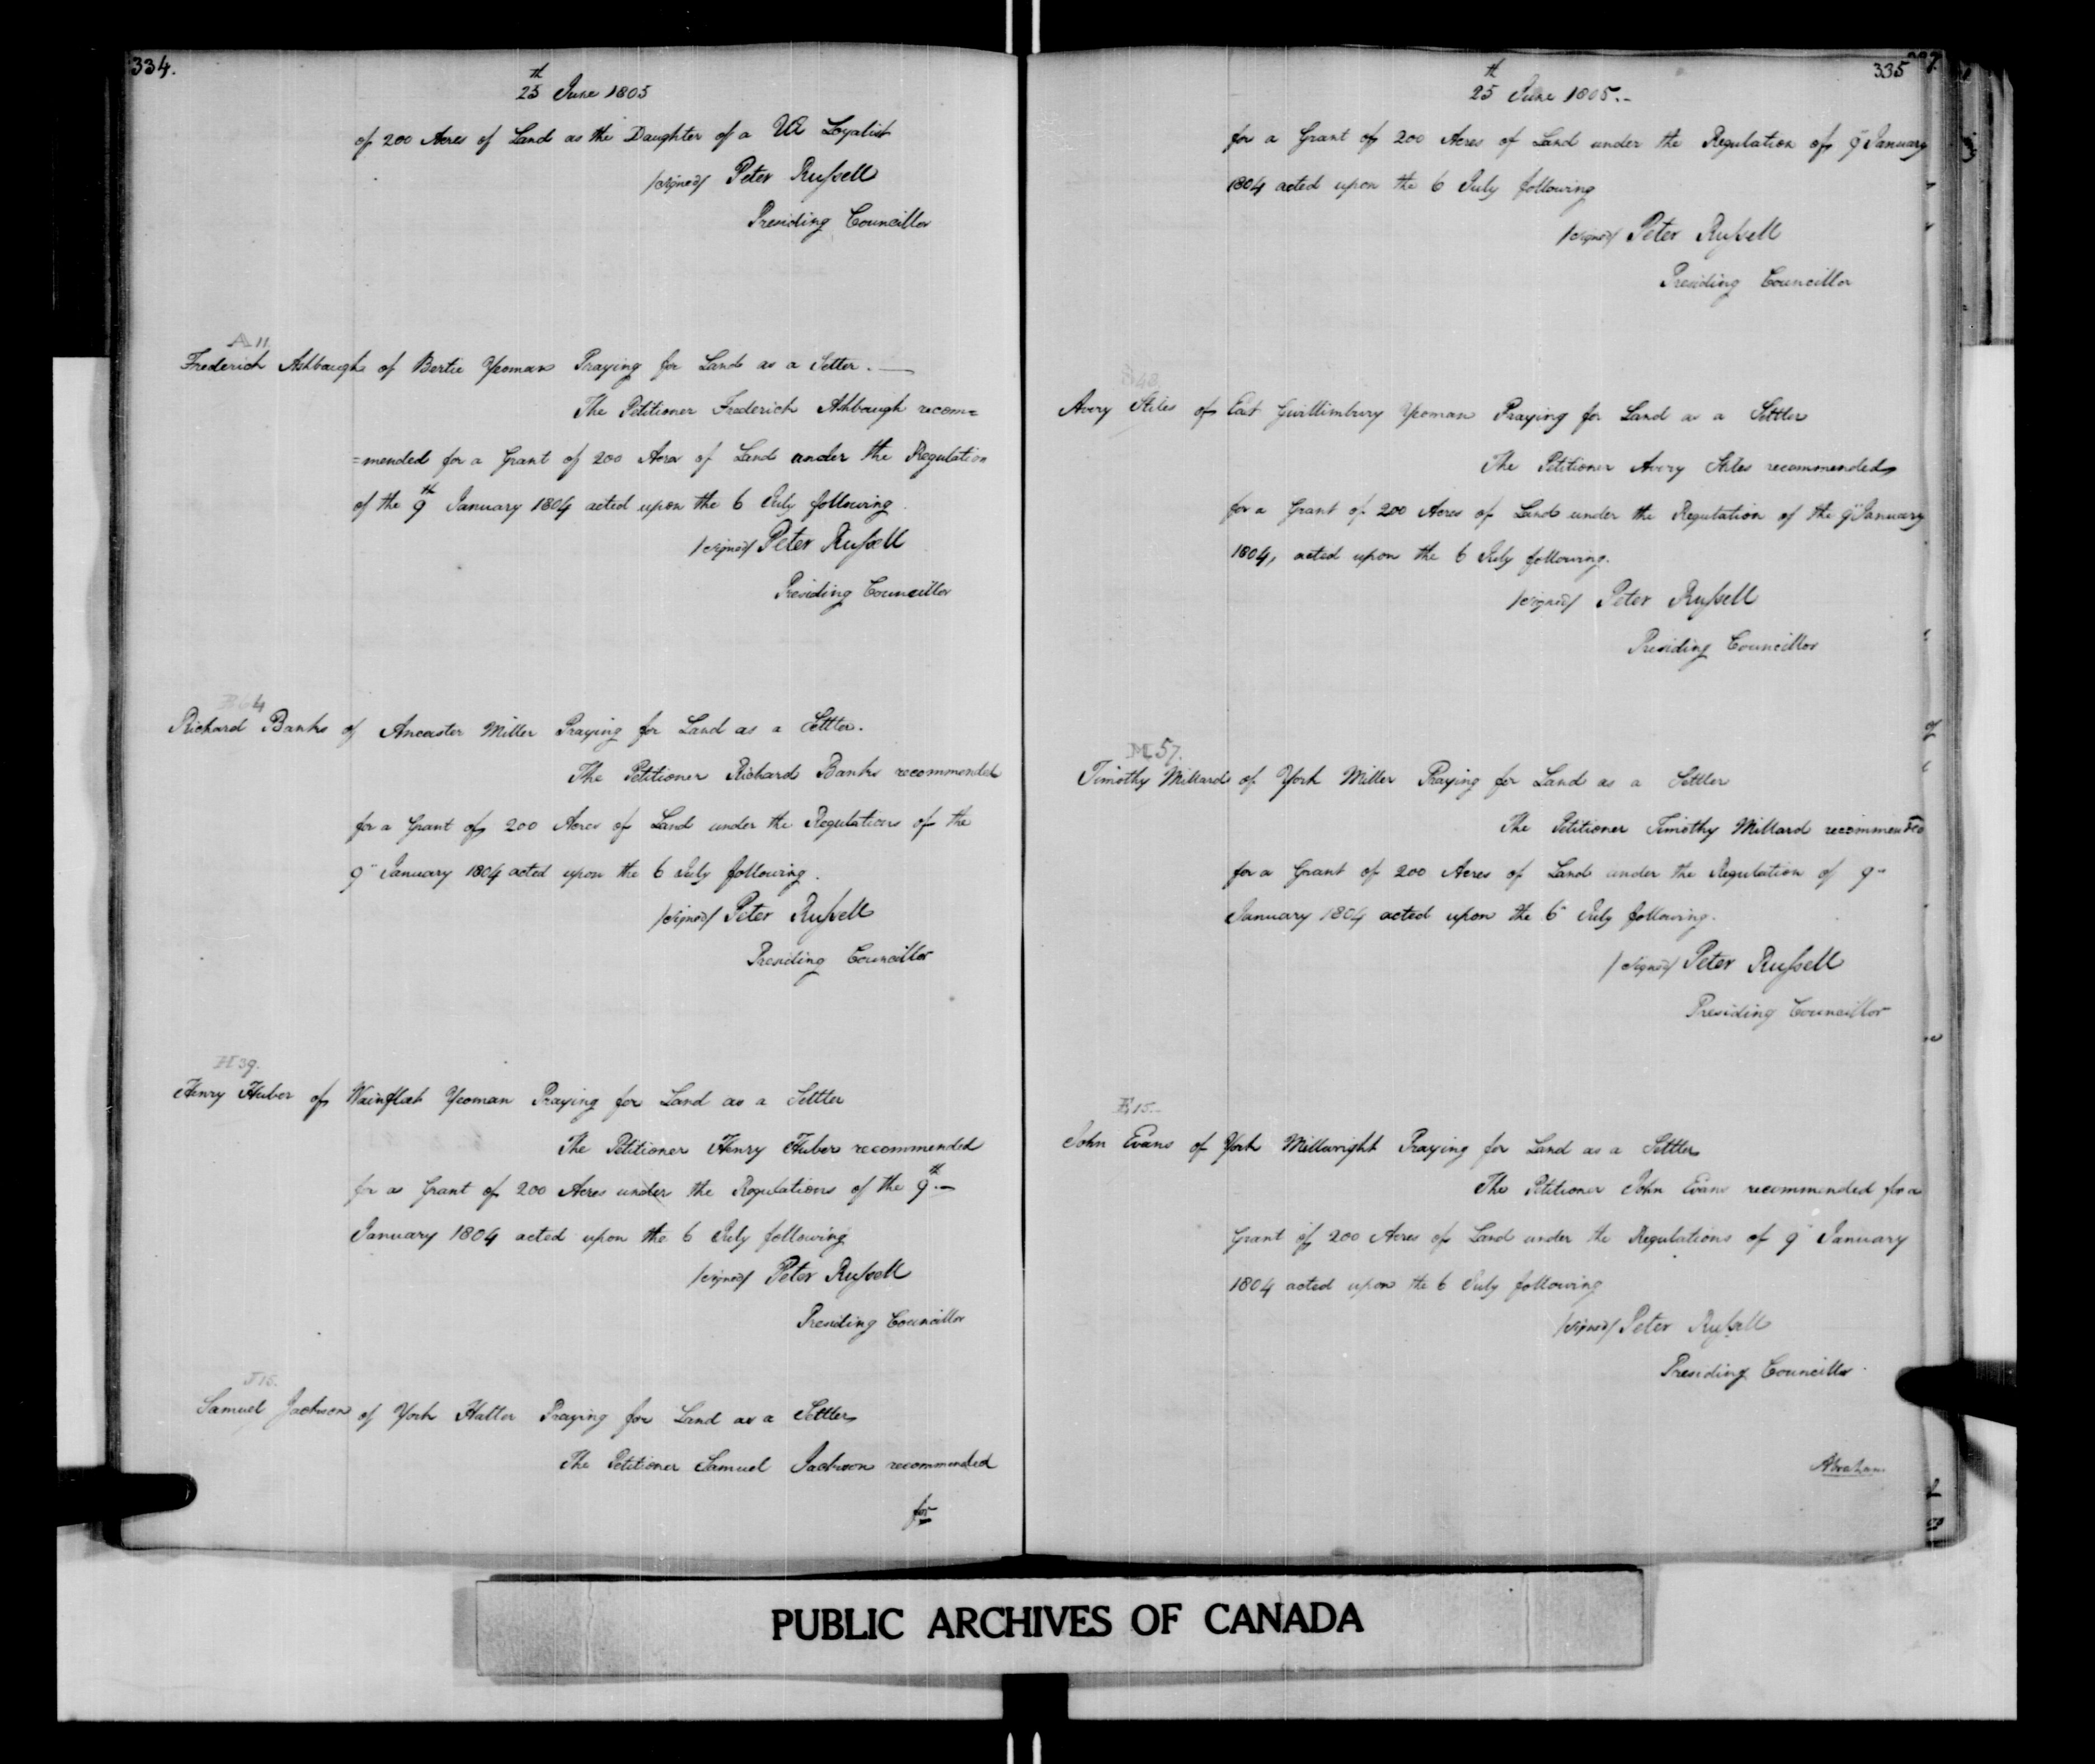 334.
25th June 1805
of 200 Acres of Land as the Daughter of a UE Loyalist
/signed/ Peter Russell
Presiding Councillor
A 11.
Frederich Ashbaugh of Bertie Yeoman Praying for Land as a Setler.
The Petitioner Frederich Ashbaugh recom=
=mended for a Grant of 200 Acres of Land under the Regulation
of the 9th January 1804 acted upon the 6 July following
/signed/ Peter Russell
Presiding Councillor
B 64
Richard Banks of Ancaster Miller Praying for Land as a Settler.
The Petitioner Richard Banks recommended
for a Grant of 200 Acres of Land under the Regulations of the
9" January 1804 acted upon the 6 July following.
/signed/ Peter Russell
Presiding Councillor
H 39.
Henry Huber of Wainfleet Yeoman Praying for Land as a Settler
The Petitioner Henry Huber recommended
for a Grant of 200 Acres under the Regulations of the 9th
January 1804 acted upon the 6 July following
/signed/ Peter Russell
Presiding Councillor
J 16.
Samuel Jackson of York Hatter Praying for Land as a Settler
The Petitioner Samuel Jackson recommended
for
335
25th June 1805.-
for a Grant of 200 Acres of Land under the Regulation of 9" January
1804 acted upon the 6 July following
/signed/ Peter Russell
Presiding Councillor
Avery Stiles of East Guillimbury Yeoman Praying for Land as a Settler
The Petitioner Avery Stiles recommended
for a Grant of 200 Acres of Land under the Regulation of the 9" January
1804, acted upon the 6 July following.
/signed/ Peter Russell
Presiding Councillor
M 57.
Timothy Millard of York Miller Praying for Land as a Settler
The Petitioner Timothy Millard recommended
for a Grant of 200 Acres of Land under the Regulation of 9"
January 1804 acted upon the 6 July following.
/signed/ Peter Russell
Presiding Councillor
E 15.
John Evans of York Millwright Praying for Land as a Settler
The Petitioner John Evans recommended for a
Grant of 200 Acres of Land under the Regulations of 9" January
1804 acted upon the 6 July following
/signed/ Peter Russell
Presiding Councillor.
Abraham
PUBLIC ARCHIVES OF CANADA